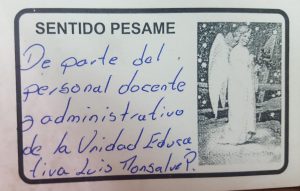 SENTIDO PESAME
De parte del
personal docente
y administrativo
de la Unidad Educa
tiva Luis Monsalve P.